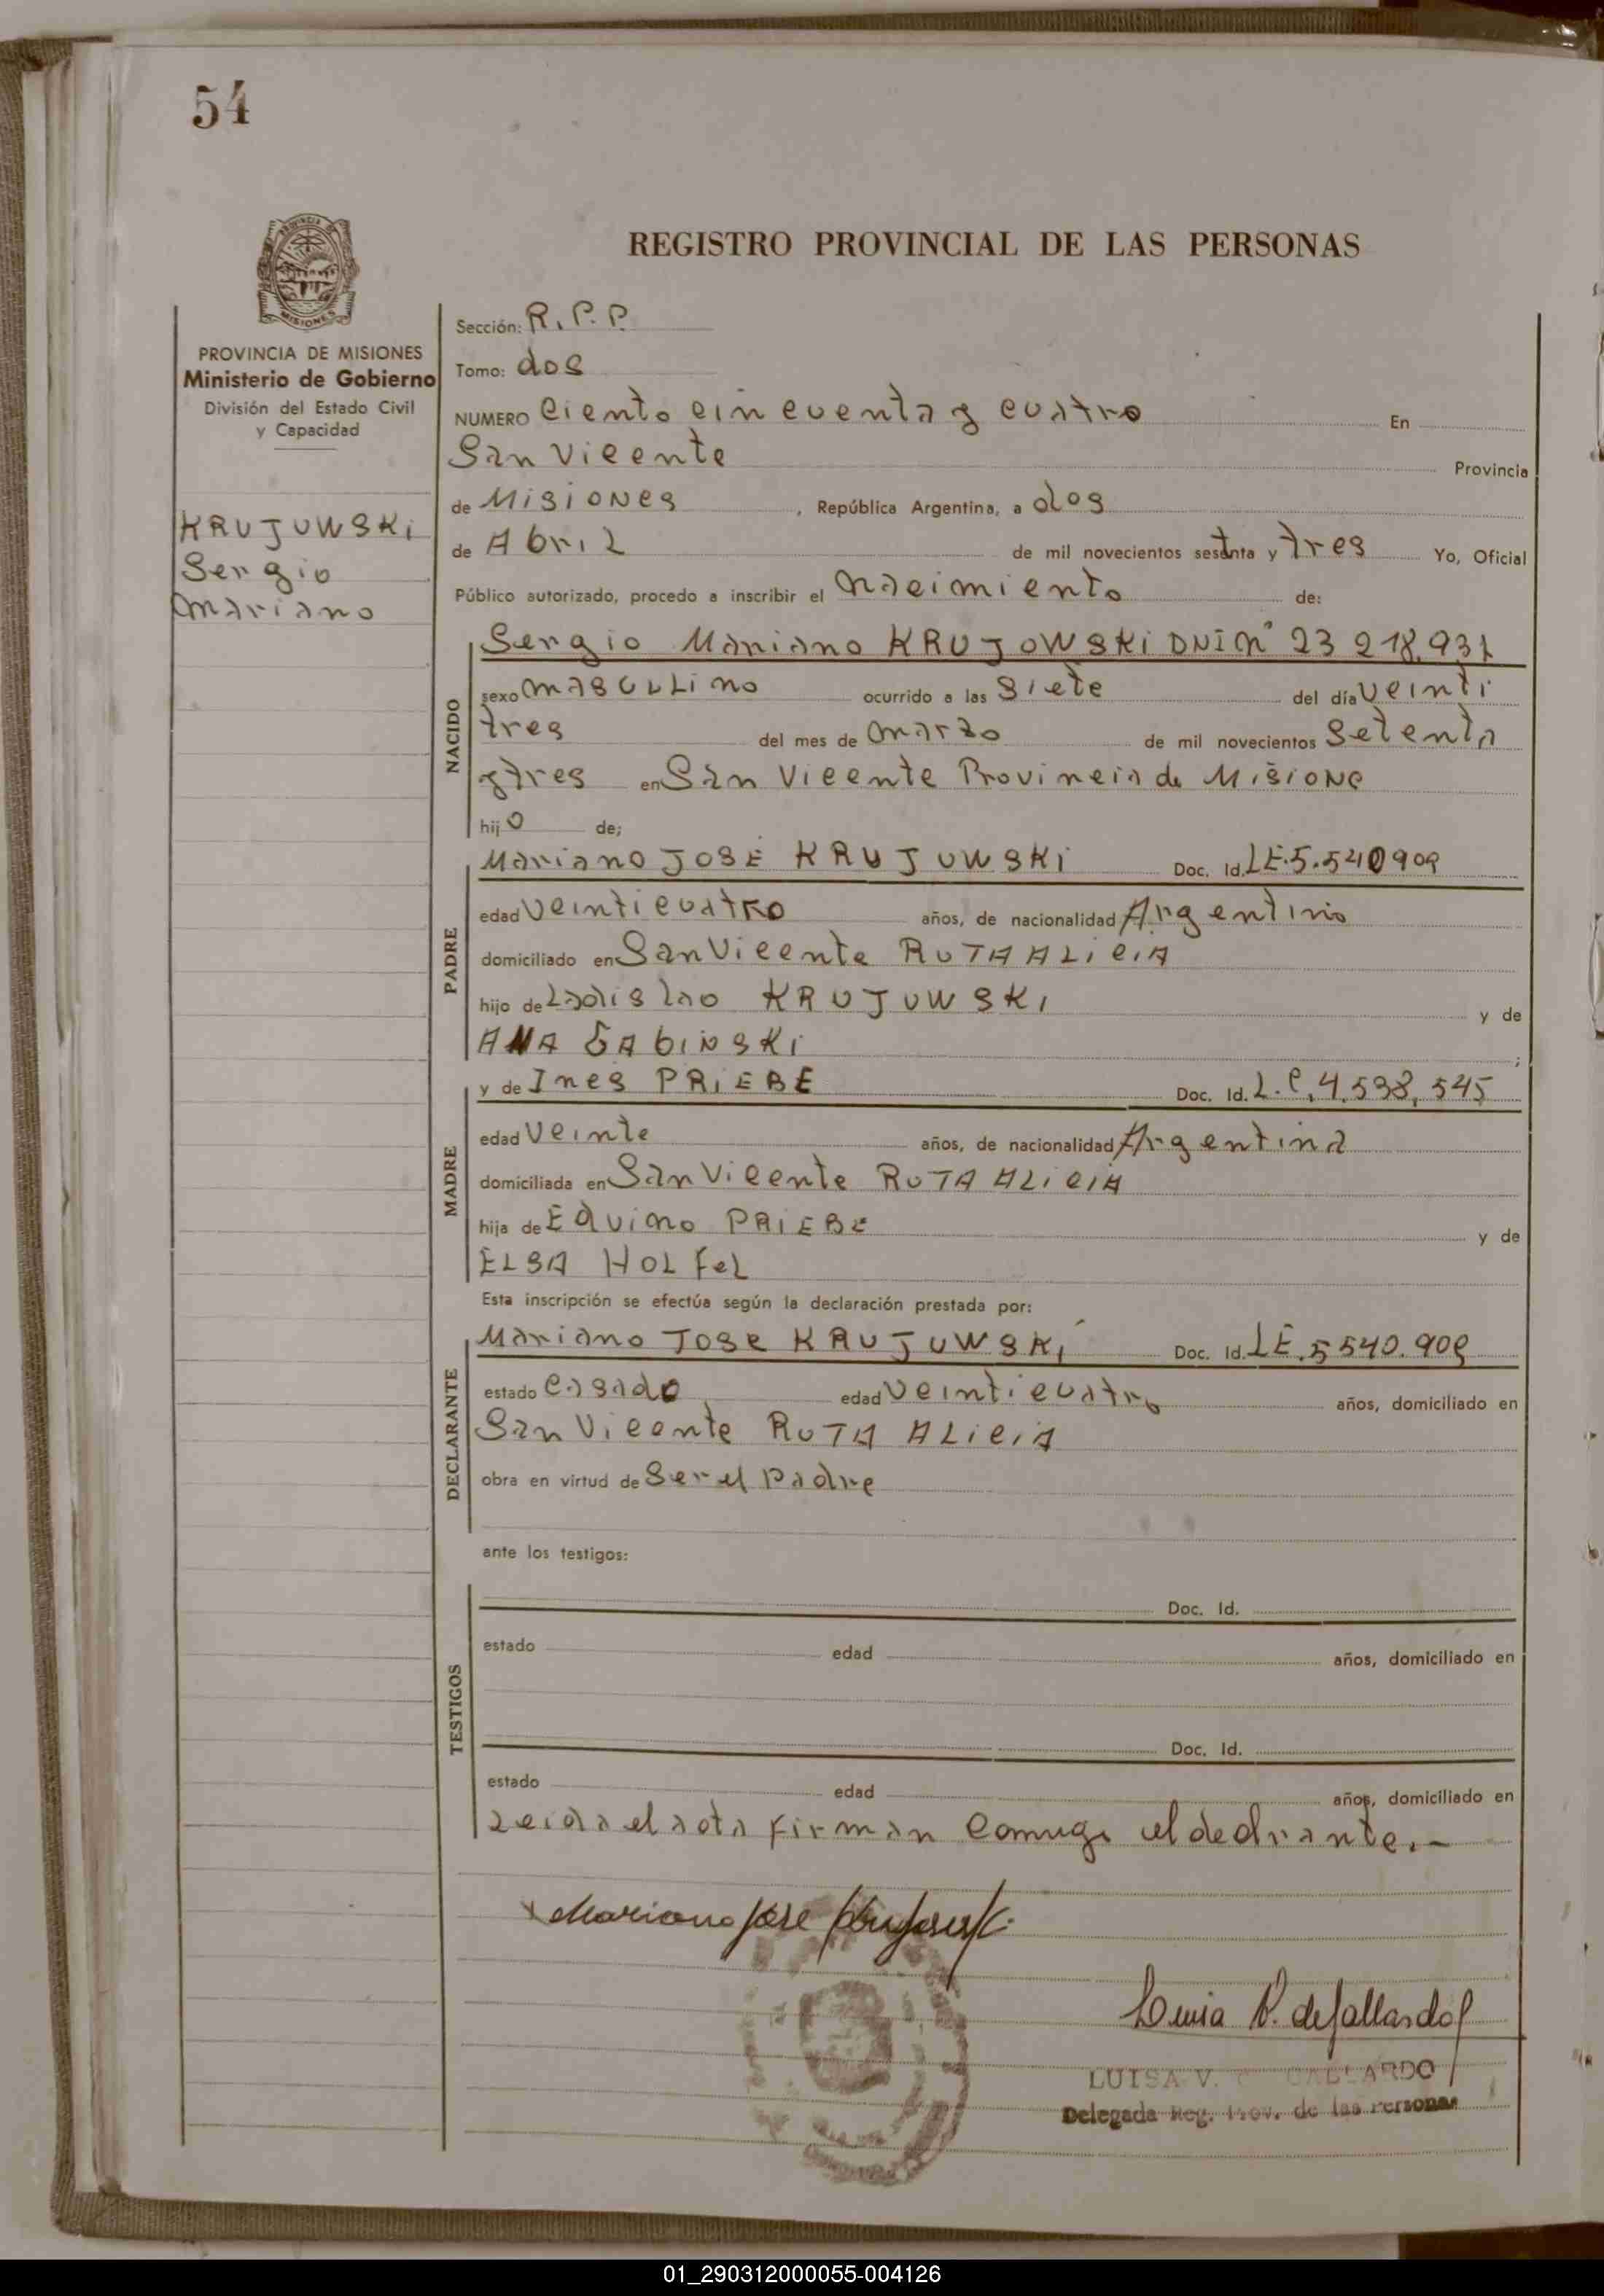 54
REGISTRO PROVINCIAL DE LAS PERSONAS
PROVINCIA DE MISIONES
Ministerio de Gobierno
División del Estado Civil
y Capacidad
KRUJUWSKi
Sergio
Mariano
Sección: R.P.P.
Tomo: dos
NUMERO Ciento cincuenta y cuatro En
San Vicente Provincia
de Misiones , República Argentina, a dos
de Abril de mil novecientos setenta y tres Yo, Oficial
Público autorizado, procedo a inscribir el nacimiento de:
NACIDO
Sergio Mariano KRUJOWSKi DNI Nº 23 218.931
sexo masculino ocurrido a las siete del día veinti
tres del mes de marzo de mil novecientos setenta
y tres en San Vicente Provincia de Misione
hijo de;
PADRE
Mariano JOSE KRUJUWSKi Doc. Id. LE.5.540909
edad veinticuatro años, de nacionalidad Argentino
domiciliado en San Vicente RUTA ALiciA
hijo de Ladislao KRUJUWSKi y de
ANA SAbiNSKi ;
MADRE
y de Ines PRiEBE Doc. Id. L.C.4.538,545
edad veinte años, de nacionalidad Argentina
domiciliada en San Vicente RUTA ALiciA
hija de Edvino PRiEBE y de
ELSA HOLFeL
Esta inscripción se efectúa según la declaración prestada por:
DECLARANTE
Mariano JOSe KRUJUWSKi Doc. Id. LE.5540.909
estado casado edad veinticuatro años, domiciliado en
San Vicente RUTA ALiciA
obra en virtud de ser el padre
ante los testigos:
TESTIGOS
Doc. Id.
estado edad años, domiciliado en
Doc. Id.
estado edad años, domiciliado en
Leida el acta firman conmigo el declarante.-
Mariano Jose
Luisa V. de Gallardo
LUISA V. GALLARDO
Delegada Reg. Prov. de las Personas
01_290312000055-004126